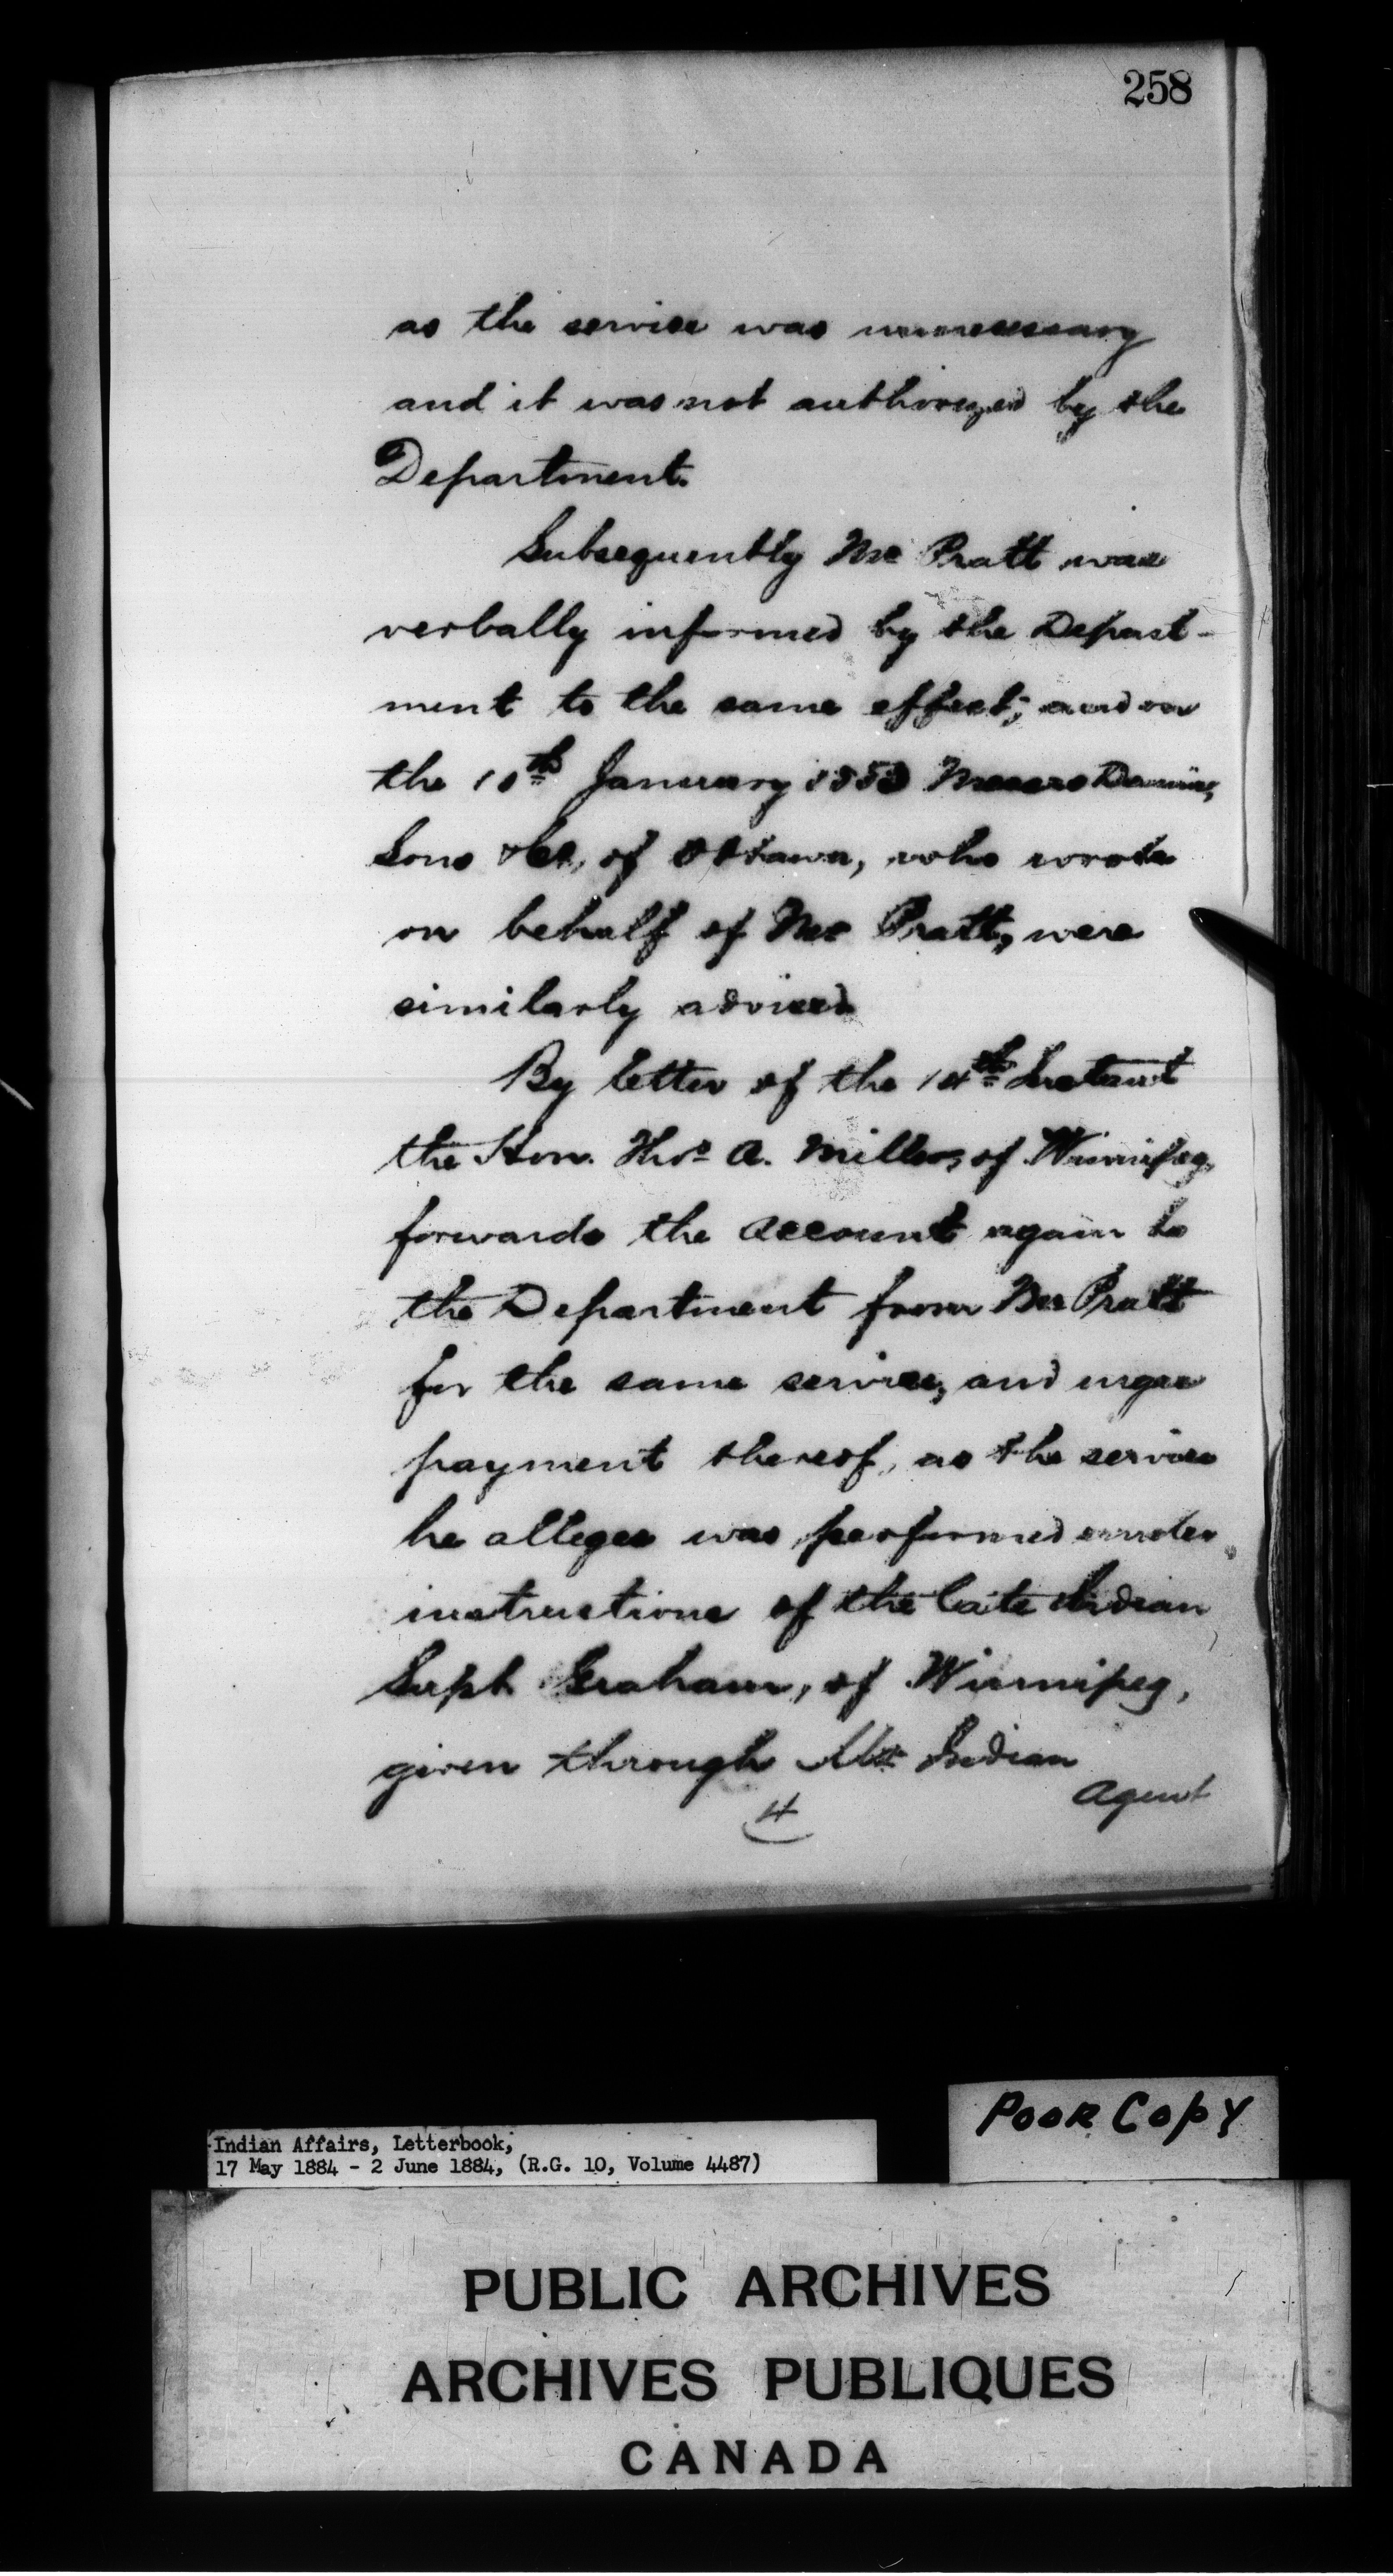 258
as the service was unnecessary
and it was not authorized by the
Department.
Subsequently Mr Pratt was
verbally informed by the Depart-
ment to the same effect; and on
the 10th January 1883 Messrs
Sons & Co, of Ottawa, who wrote
on behalf of Mr Pratt, were
similarly advised
By letter of the 14th Instant
the Hon. Thos A. Miller, of Winnipeg,
forwards the account again to
the Department from Mr Pratt
for the same service, and urges
payment thereof, as the service
he alleges was performed under
instructions of the late Indian
Supt. Graham, of Winnipeg,
given through Indian
Agent
Poor Copy
Indian Affairs, Letterbook,
17 May 1884 - 2 June 1884, (R.G. 10, Volume 4487)
PUBLIC ARCHIVES
ARCHIVES PUBLIQUES
CANADA